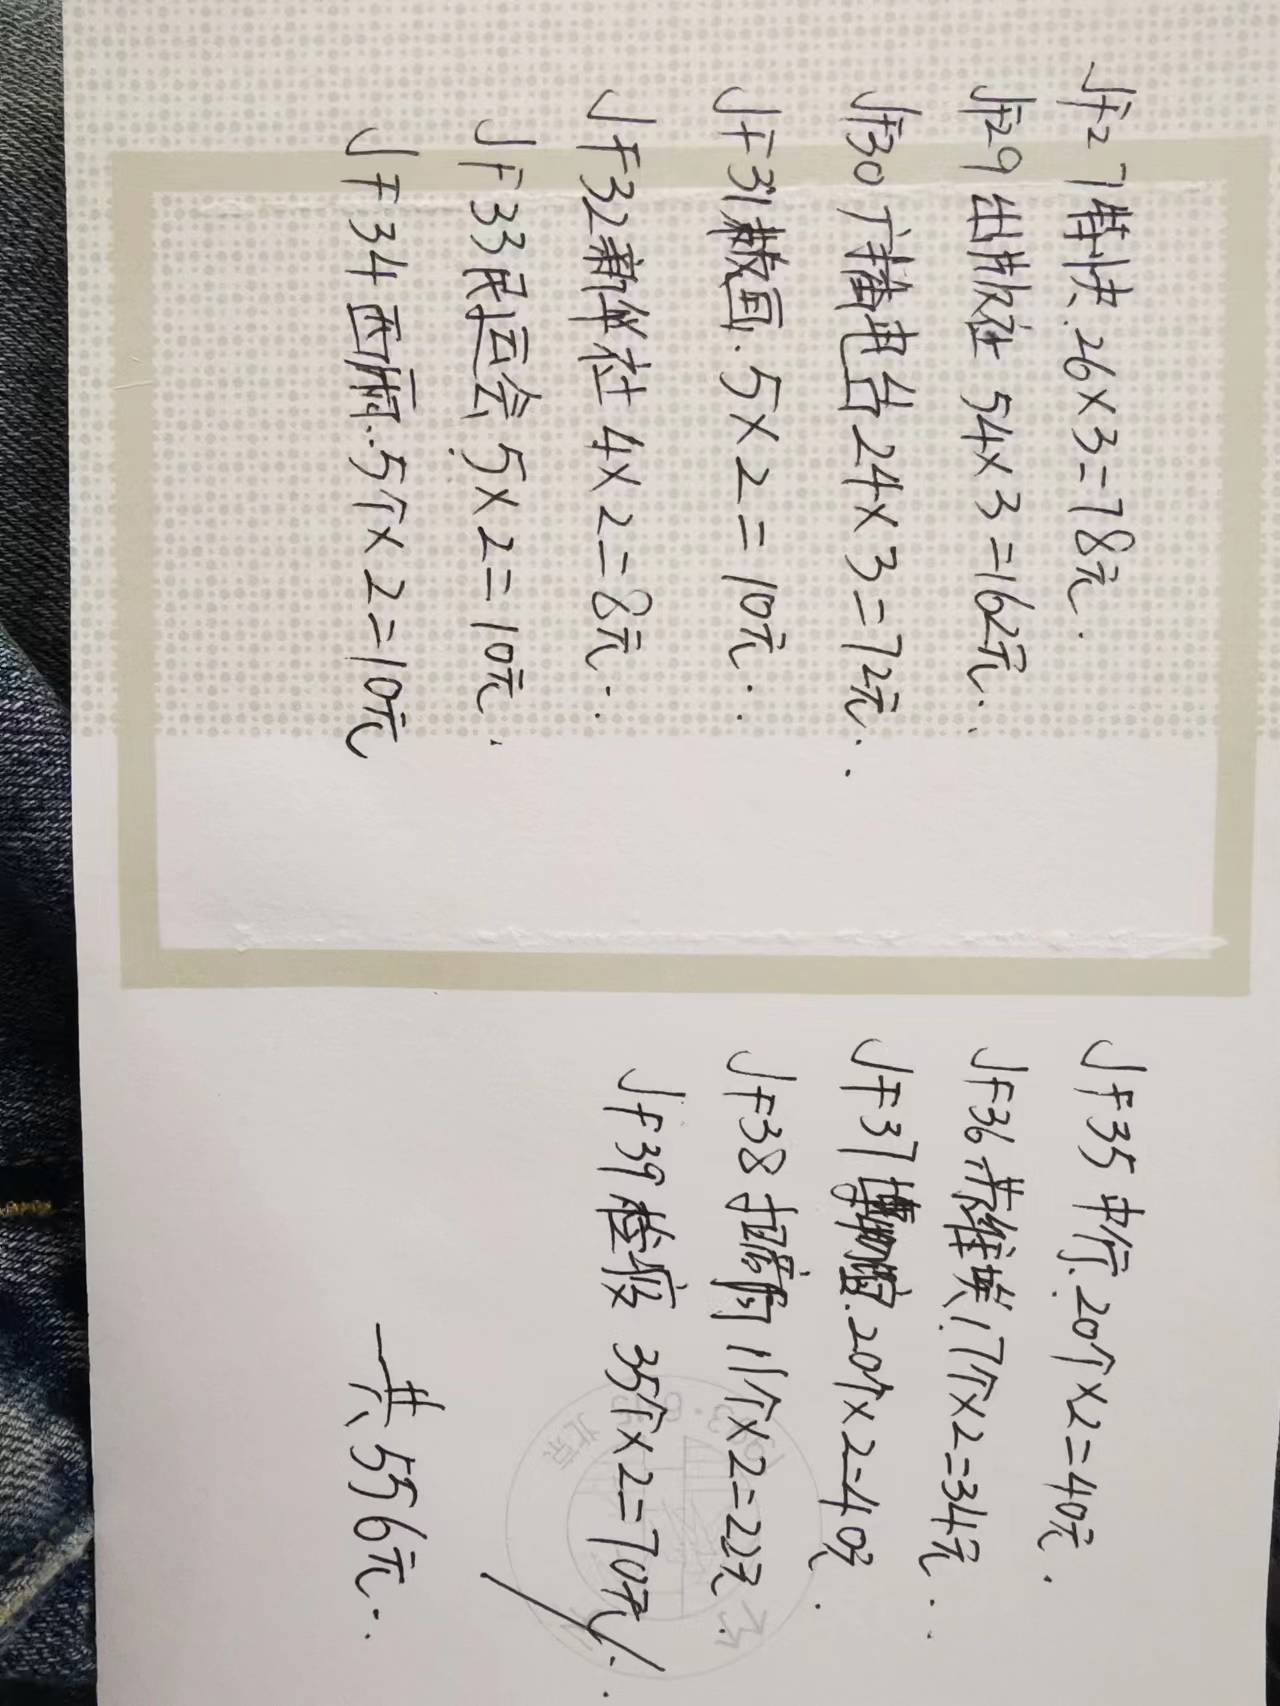 JF27特快.26×3=78元.
JF29出版社 54×3=162元..
JF30广播电台24×3=72元..
JF31敎画.5×2=10元..
JF32新华社4×2=8元..
JF33民运会5×2=10元.
JF34西厢.5个×2=10元
JF35中行.20个×2=40元.
JF36苏维埃17个×2=34元..
JF37博物馆.20个×2=40元.
JF38 11个×2=22元.
JF39检疫 35个×2=70元..
一共556元..
北京